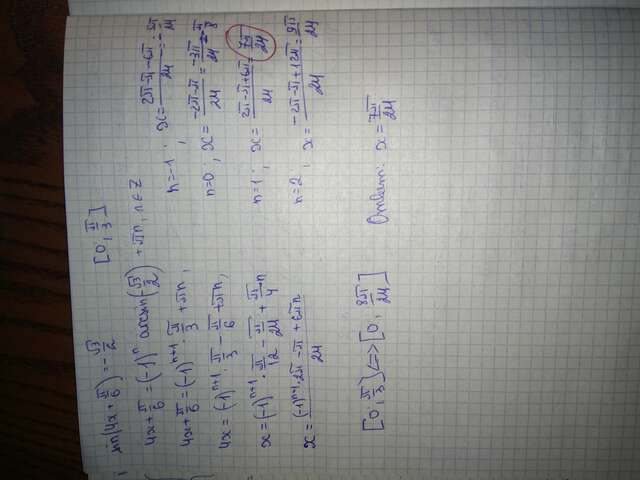 sin(4x+π/6)=-√3/2 [0; π/3]
4x+π/6=(-1)ⁿ arcsin(-√3/2)+πn, n∈Z
4x+π/6=(-1)ⁿ⁺¹·π/3+πn;
4x=(-1)ⁿ⁺¹·π/3-π/6+πn;
x=(-1)ⁿ⁺¹·π/12-π/24+π/4 n
x=((-1)ⁿ⁺¹·2π-π+6πn)/24
n=-1; x=(2π-π-6π)/24=-5π/24
n=0, x=(-2π-π)/24=-3π/24=-π/8
n=1; x=(2π-π+6π)/24=7π/24
n=2, x=(-2π-π+12π)/24=9π/24
[0; π/3]<=>[0; 8π/24]
Ответ: x=7π/24